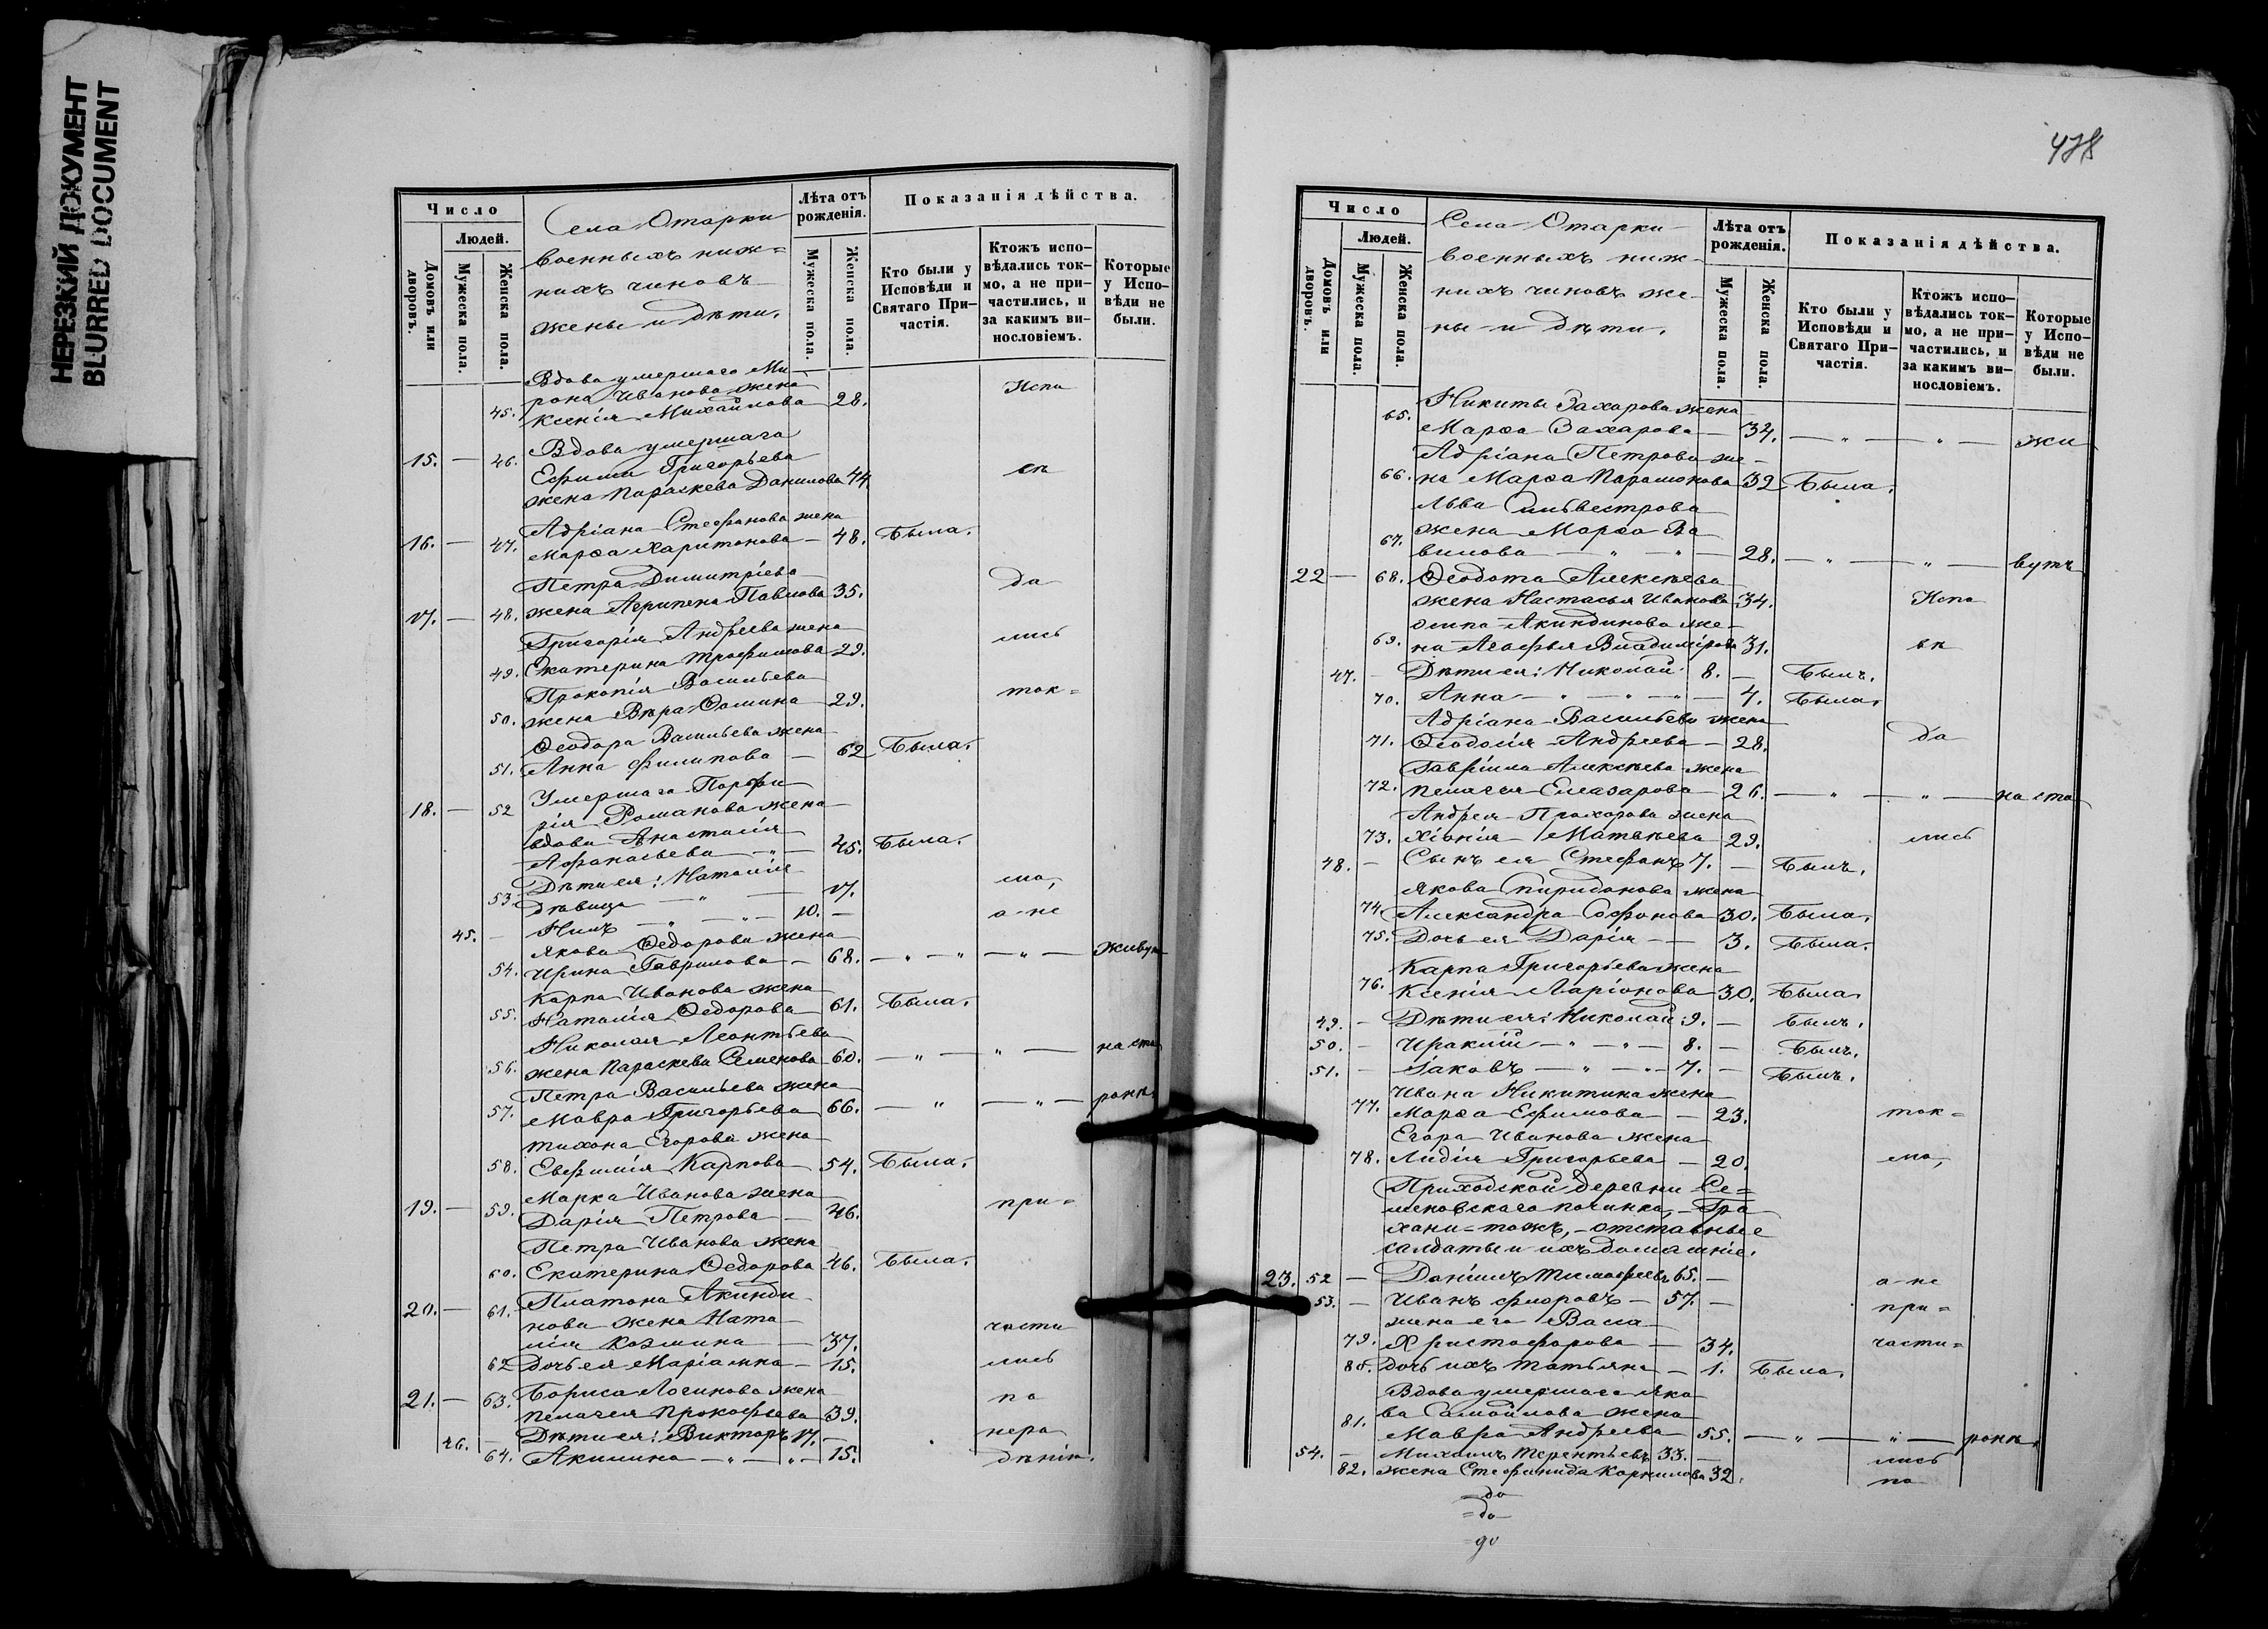 НЕРЕЗКИЙ ДОКУМЕНТ
BLURRED DOCUMENT
Число
Людей.
Домовъ или дворовъ.
Мужеска пола.
Женска пола.
Села Отарки
военныхъ ниж=
нихъ чиновъ
жены и дѣти.
Лѣта отъ рожденія.
Мужеска пола.
Женска пола.
Показанія дѣйства.
Кто были у Исповѣди и Святаго Причастія.
Ктожъ исповѣдались токмо, а не причастились, и за какимъ винословіемъ.
Которые у Исповѣди не были.
Вдова умершаго Ми
рона Иванова жена Испо
45. Ксенія Михайлова 28.
15. — 46. Вдова умершаго
Ефима Григорьева вѣ
жена Параскева Данилова 44
Адріана Стефанова жена
16. — 47. Марѳа Харитонова — 48. Была.
Петра Димитріева да
17. — 48. жена Агрипена Павлова 35.
Григорія Андреева жена лись
49. Екатерина Трофимова 29.
Прокопія Васильева ток=
50. жена Вѣра Ѳомина 29.
Ѳеодора Васильева жена
51. Анна Филипова — 62 Была.
18. — 52 Умершаго Порфи
рія Романова жена
вдова Анастасія
Афанасьева — " — 45. Была.
53. Дѣти ея: Наталія мо,
дѣвица — " — 17.
45. — Нилъ — " — " — 10. — а не
Якова Ѳедорова жена
54. Ирина Гаврилова — 68. — " — " — " — живут
Карпа Иванова жена
55. Наталія Ѳедорова 61. Была.
Николая Леонтьева
56. жена Параскева Семенова 60. — " — " — на сто
Петра Васильева жена
57. Мавра Григорьева 66. — " — " — ронѣ.
Тихона Егорова жена
58. Евфимія Карпова — 54. Была.
19. — 59. Марка Иванова жена при=
Дарія Петрова — 46.
Петра Иванова жена
60. Екатерина Ѳедорова 46. Была.
20. — 61. Платона Акинди
нова жена Ната части
лія Козмина — 37.
62 Дочь ея Маріамна — 15. лись
21. — 63. Бориса Логинова жена по
Пелагея Прокофьева 39.
46. — Дѣти ея: Викторъ 17. — нера
64. Акилина — " — " — 15. дѣнію.
478
Число
Людей.
Домовъ или дворовъ.
Мужеска пола.
Женска пола.
Села Отарки
военныхъ ниж-
нихъ чиновъ же-
ны и дѣти.
Лѣта отъ рожденія.
Мужеска пола.
Женска пола.
Показанія дѣйства.
Кто были у Исповѣди и Святаго Причастія.
Ктожъ исповѣдались токмо, а не причастились, и за какимъ винословіемъ.
Которые у Исповѣди не были.
65. Никиты Захарова жена
Марѳа Захарова — 34. — " — " — жи
Адріана Петрова же-
66. на Марѳа Парамонова 32 Была.
Льва Сильвестрова
67. жена Марѳа Ва
вилова — " — " — 28. — " — " — вутъ
22 — 68. Ѳеодота Алексѣева
жена Настасья Иванова 34. Испо
Осипа Акиндинова же-
69. на Агафья Владимірова 31. вѣ
47. — Дѣти ея: Николай 8. — Былъ.
70. Анна — " — " — 4. Была.
Адріана Васильева жена
71. Ѳеодосія Андреева — 28. да
Гавріила Алексѣева жена
72. Пелагея Елеазарова 26. — " — " — на сто
Андрея Прохорова жена
73. Хіонія Матвѣева 29. лись
48. — Сынъ ея Стефанъ 7. — Былъ.
Якова Спиридонова жена
74. Александра Софонова 30. Была.
75. Дочь ея Дарія — 3. Была.
Карпа Григорьева жена
76. Ксенія Ларіонова 30. Была.
49. — Дѣти ея: Николай 9. — Былъ.
50. — Ираклій — " — " — 8. — Былъ.
51. — Іаковъ — " — " — 7. — Былъ.
Ивана Никитина жена
77. Марѳа Ефимова — 23. ток=
Егора Иванова жена
78. Лидія Григорьева — 20. мо,
Приходской деревни Се=
меновскаго починка, Гра
хани=тожъ, отставные
салдаты и ихъ домашніе.
23. 52 — Даніилъ Тимофеевъ 65. — а не
53. — Иванъ Флоровъ — 57. — при=
жена его Васа
79. Христофорова — 34. части=
80. Дочь ихъ Татьяна — 1. Была.
Вдова умершаго Яко
81. ва Самойлова жена
Мавра Андреева 55. — " — " — ронѣ.
54. — Михаилъ Терентьевъ 33. — лись
82. жена Стефанида Корнилова 32. по
=до
=до